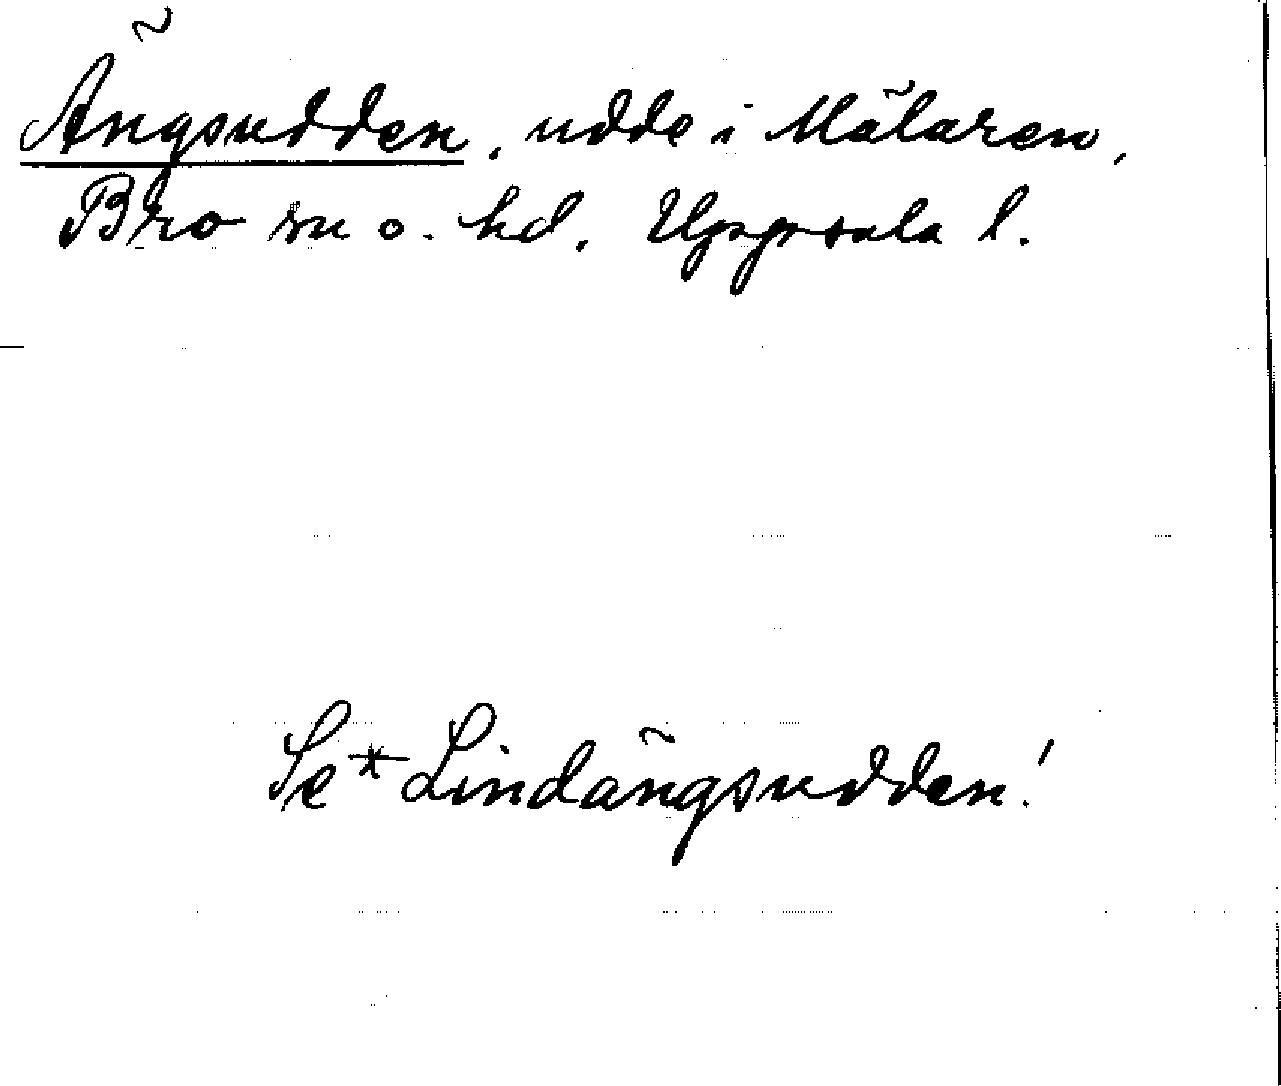 Ängsudden, udde i Mälaren,
Bro sn o. hd, Uppsala l.
Se * Lindängsudden!